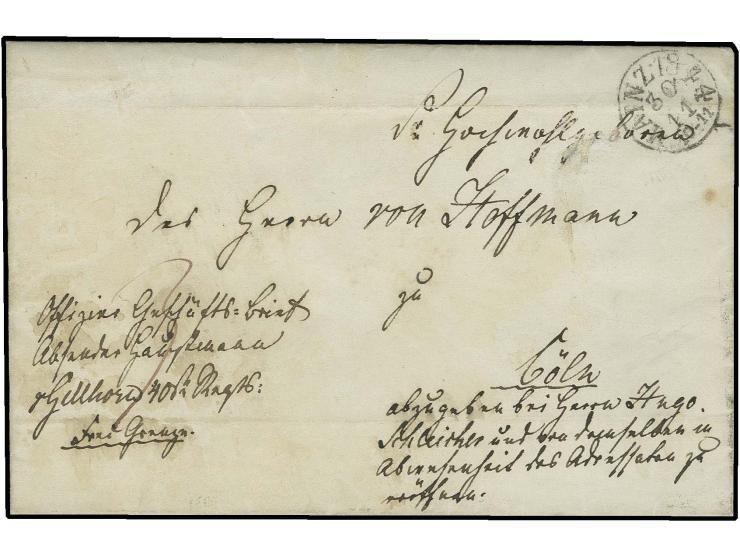 MAINZ 1844
30
11
Sr Hochwohlgeboren
des Herrn von Hoffmann
zu
Cöln
abzugeben bei Herrn Hugo
Schleicher und von demselben in
Abwesenheit des Adressaten zu
eröffnen.
Offizier Geschäfts=Brief
Absender Hauptmann
vGellhorn 40st Regts:
Frei Grenze.